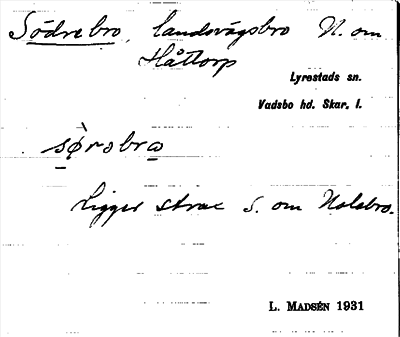 Södrebro, landsvägsbro N. om
Håttorp
Lyrestads sn.
Vadsbo hd. Skar. l.
sø̀rəbro
Ligger strax S. om Nolabro.
L. MADSÉN 1931